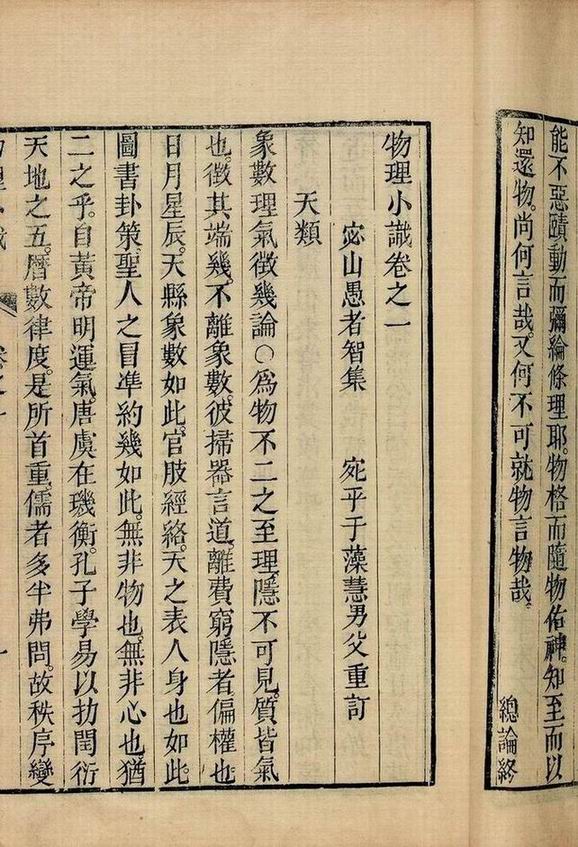 能不惡賾動而彌綸條理耶。物格而隨物佑神。知至而以
知還物。尚何言哉。又何不可就物言物哉。 總論終
物理小識卷之一
宓山愚者智集 宛平于藻慧男父重訂
天類
象數理氣徵幾論○爲物不二之至理。隱不可見。質皆氣
也。徵其端幾。不離象數。彼掃器言道。離費窮隱者偏權也。
日月星辰。天縣象數如此。官肢經絡。天之表人身也如此。
圖書卦策。聖人之冒準約幾如此。無非物也。無非心也猶
二之乎。自黃帝明運氣。唐虞在璣衡。孔子學易以扐閏衍
天地之五。曆數律度。是所首重。儒者多半弗問。故秩序變